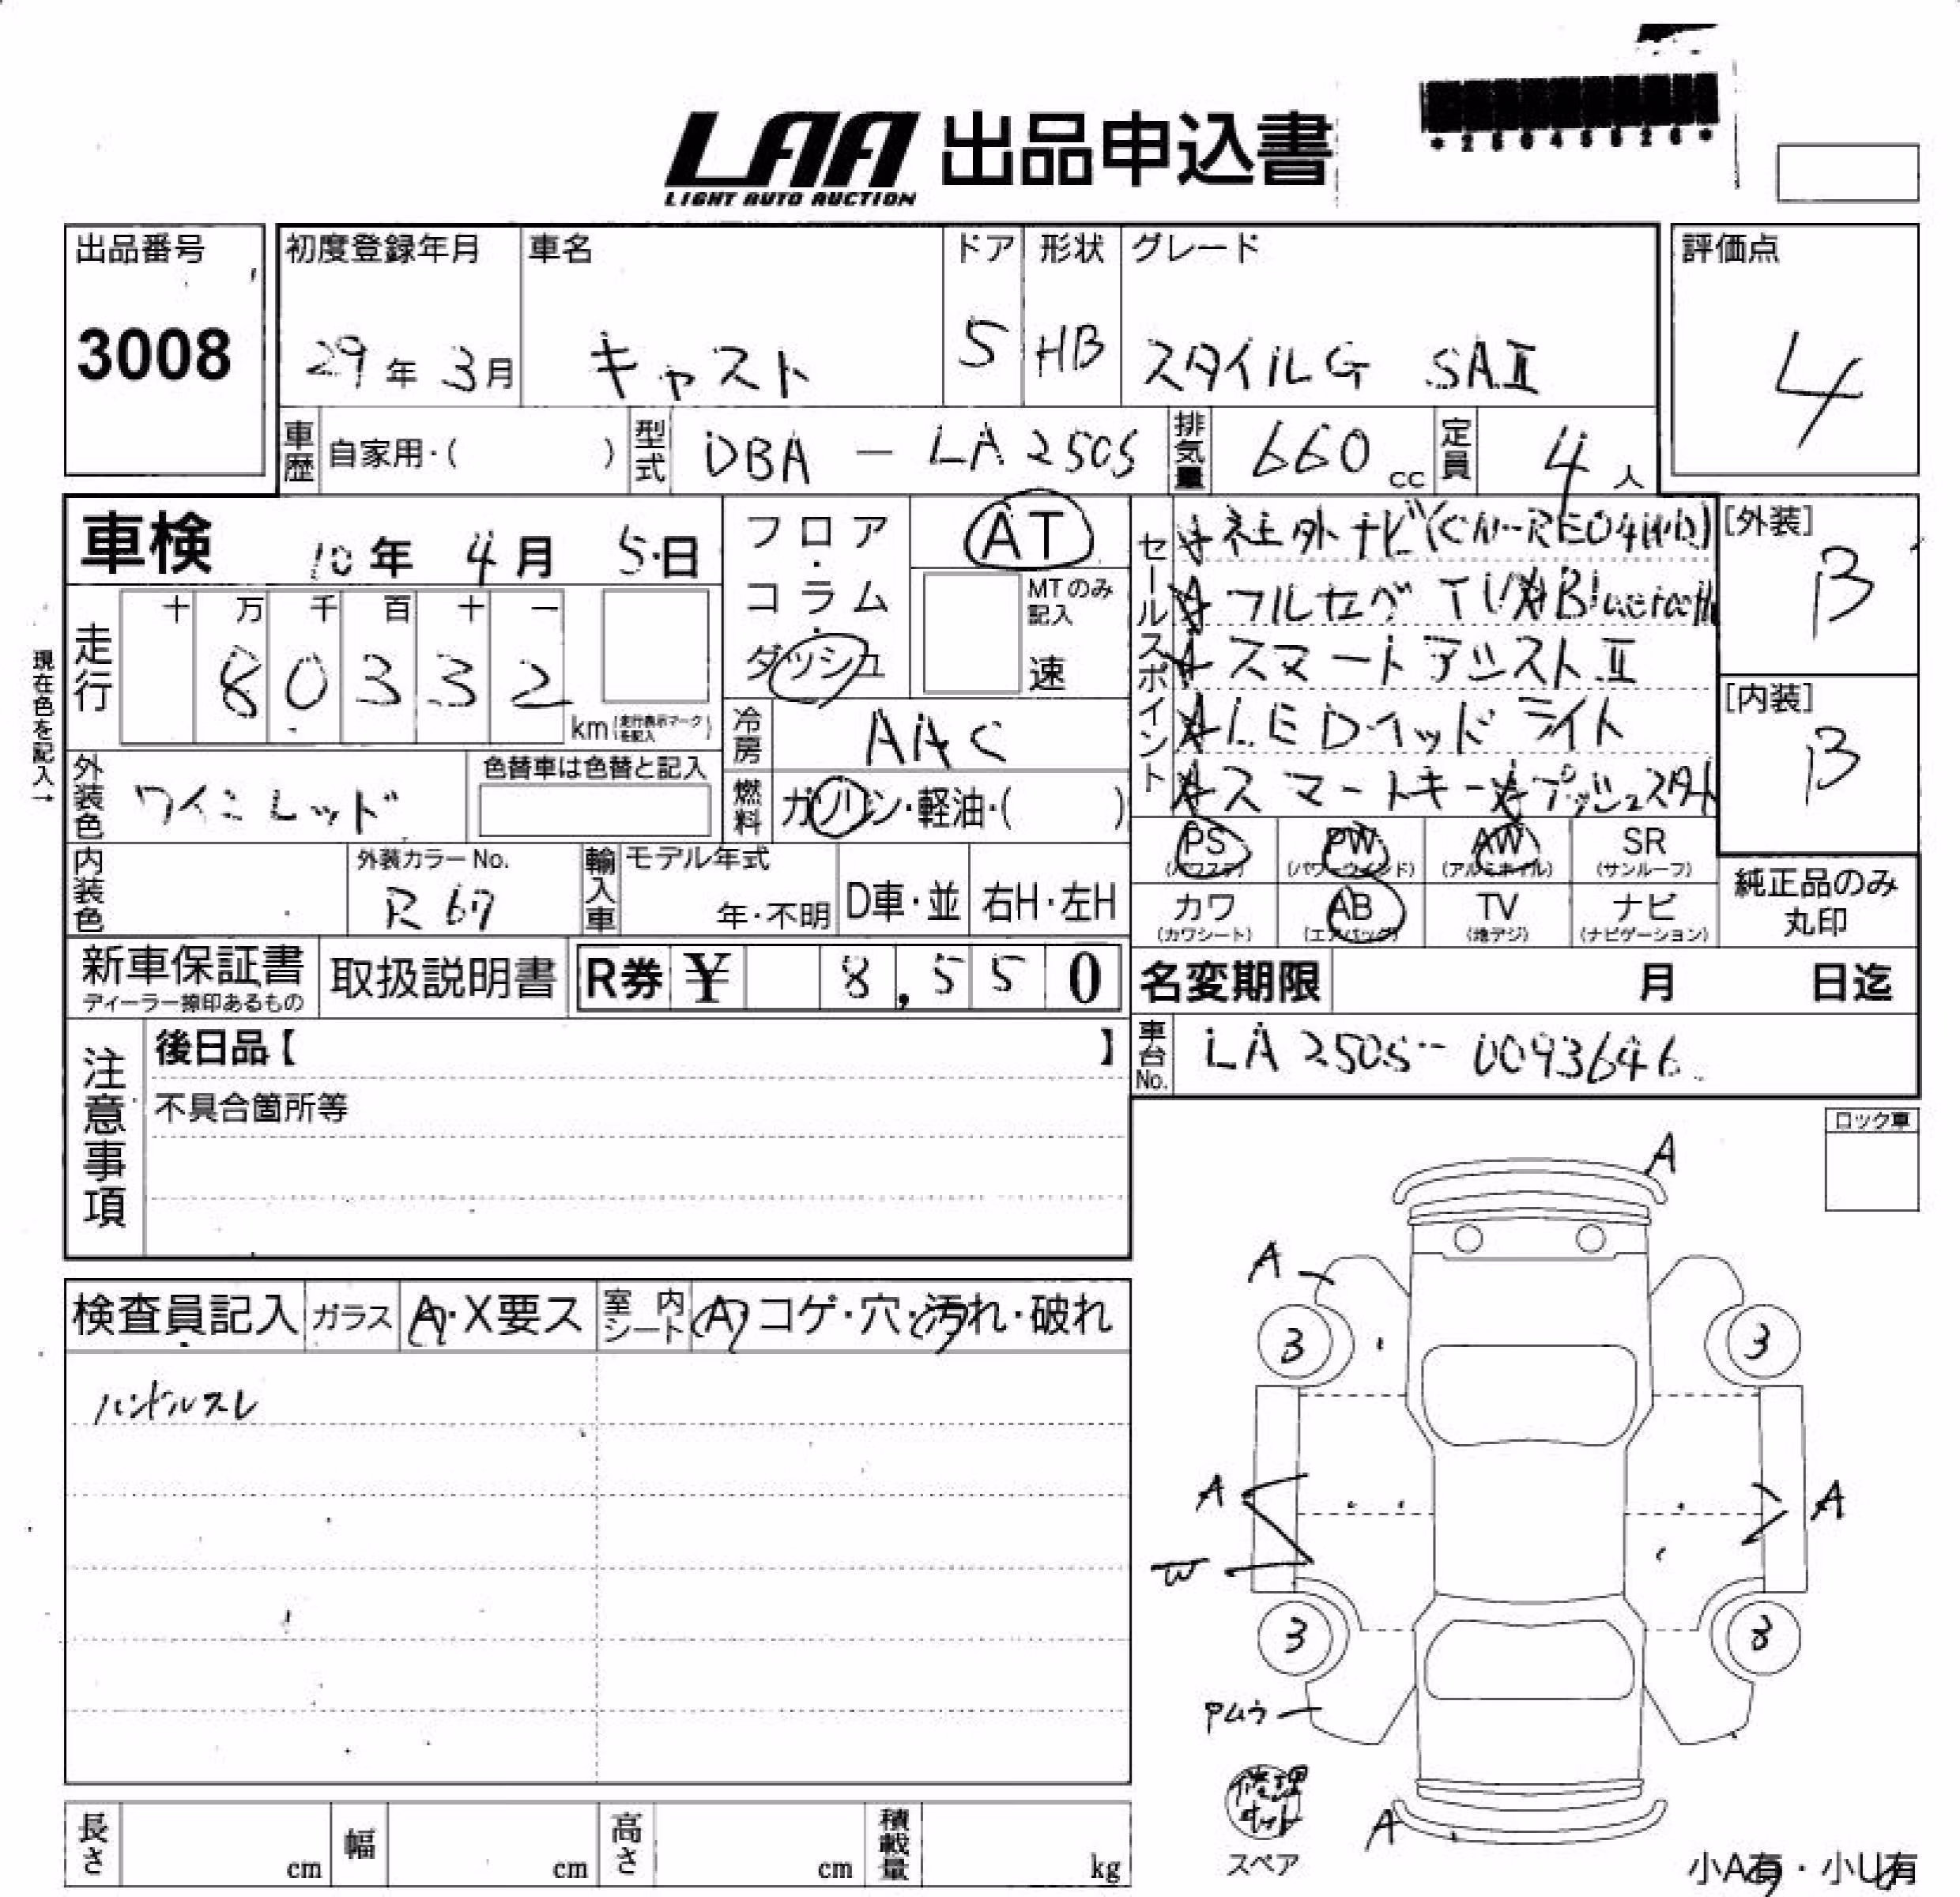 *25045526*
LAA 出品申込書
LIGHT AUTO AUCTION
出品番号 初度登録年月 車名 ドア 形状 グレード 評価点
3008 29年 3月 キャスト 5 HB スタイルG SAⅡ 4
車歴 自家用・( ) 型式 DBA - LA250S 排気量 660cc 定員 4人
車検 10年 4月 5日
フロア・コラム・ダッシュ AT
MTのみ記入 速
走行 十 万 千 百 十 一
8 0 3 3 2
km (走行表示マークを記入)
現在色を記入→
外装色 ワインレッド 色替車は色替と記入
冷房 AAC
燃料 ガソリン・軽油・( )
セールスポイント
社外ナビ(CN-RE04WD)
フルセグTV Bluetooth
スマートアシストⅡ
LEDヘッドライト
スマートキー プッシュスタート
[外装] B
[内装] B
内装色 外装カラーNo. R67 輸入車 モデル年式 年・不明 D車・並 右H・左H
PS (パワステ) PW (パワーウインド) AW (アルミホイル) SR (サンルーフ)
カワ (カワシート) AB (エアバッグ) TV (地デジ) ナビ (ナビゲーション)
純正品のみ丸印
新車保証書 ディーラー捺印あるもの 取扱説明書 R券 ¥ 8,550
名変期限 月 日迄
車台No. LA250S-0093646
注意事項
後日品【 】
不具合箇所等
ロック車
検査員記入 ガラス A・X要ス 室内シート A・コゲ・穴・汚れ・破れ
ハンドルスレ
A
A
3 3
A A
W
3 3
Pムラ
修理キット
スペア
A
小A有・小U有
長さ cm 幅 cm 高さ cm 積載量 kg